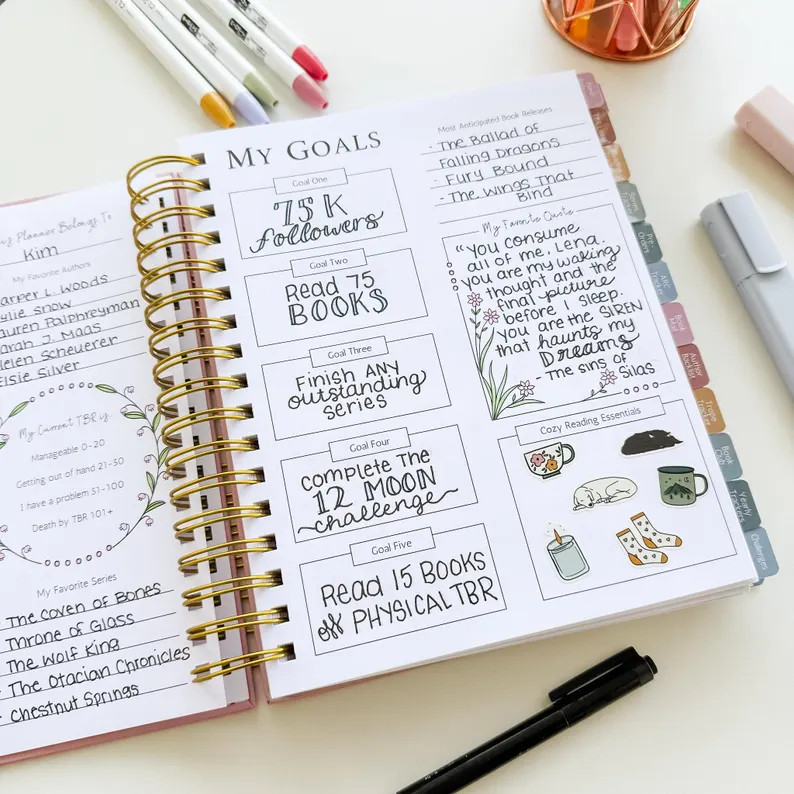 Planner Belongs To
Kim
My Favorite Authors
arper L. Woods
ylie Snow
auren Palphreyman
arah J. Maas
elen Scheuerer
lsie Silver
My Current TBR is
Manageable 0-20
Getting out of hand 21-50
I have a problem 51-100
Death by TBR 101+
My Favorite Series
- The Coven of Bones
- Throne of Glass
- The Wolf King
- The Otacian Chronicles
- Chestnut Springs
MY GOALS
Goal One
75K
followers
Goal Two
Read 75
BOOKS
Goal Three
Finish ANY
outstanding
series
Goal Four
Complete The
12 MOON
challenge
Goal Five
Read 15 BOOKS
off PHYSICAL TBR
Most Anticipated Book Releases
- The Ballad of
Falling Dragons
- Fury Bound
- The Wings That
Bind
My Favorite Quote
"You consume
all of me, Lena.
you are my waking
thought and the
final picture
before I sleep.
You are the SIREN
that haunts my
Dreams
The sins of
Silas
Cozy Reading Essentials
Series
Tracker
Pre-
Orders
ARC
Tracker
Book
Mail
Author
Backlist
Trope
Tracker
Book
Club
Yearly
Trackers
Challenges